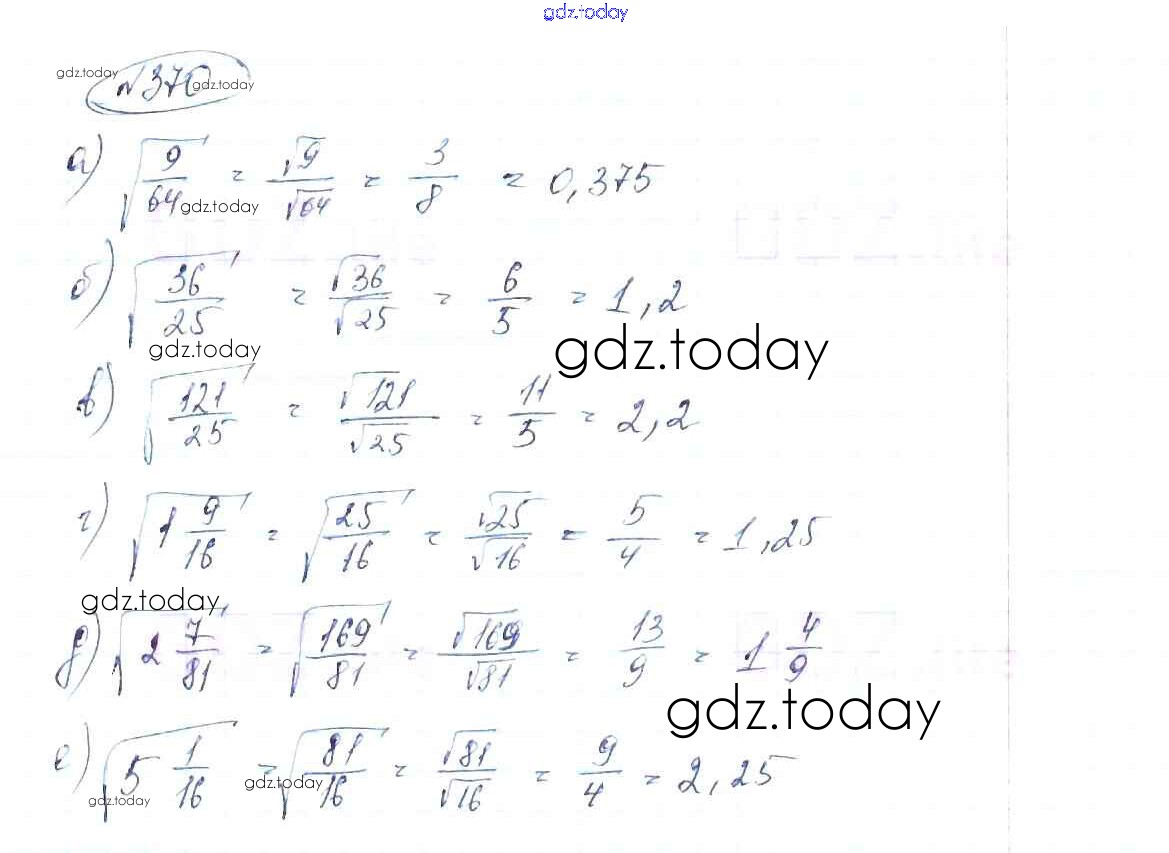 gdz.today
gdz.today №370 gdz.today
а) √(9/64) = √9/√64 = 3/8 = 0,375
gdz.today
б) √(36/25) = √36/√25 = 6/5 = 1,2
gdz.today gdz.today
в) √(121/25) = √121/√25 = 11/5 = 2,2
г) √(1 9/16) = √(25/16) = √25/√16 = 5/4 = 1,25
gdz.today
д) √(2 7/81) = √(169/81) = √169/√81 = 13/9 = 1 4/9
gdz.today
е) √(5 1/16) = √(81/16) = √81/√16 = 9/4 = 2,25
gdz.today gdz.today